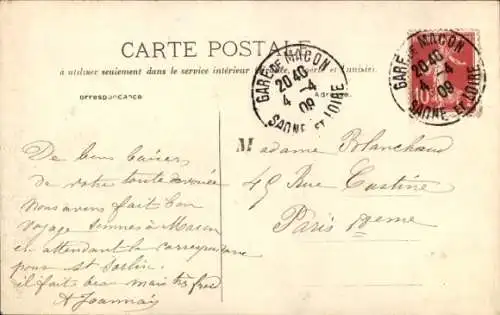 CARTE POSTALE
à utiliser seulement dans le service intérieur Algérie et Tunisie
Correspondance
Adresse
GARE DE MACON
20 40
4 -4
09
SAONE ET LOIRE
GARE DE MACON
20 40
4 -4
09
SAONE ET LOIRE
10
De bons baisers
de votre toute dévouée
Nous avons fait bon
voyage sommes à Macon
en attendant la correspondance
pour St Sorlin.
il fait beau mais très froid
A Joannais
Madame Blanchaud
49 Rue Custine
Paris 18eme